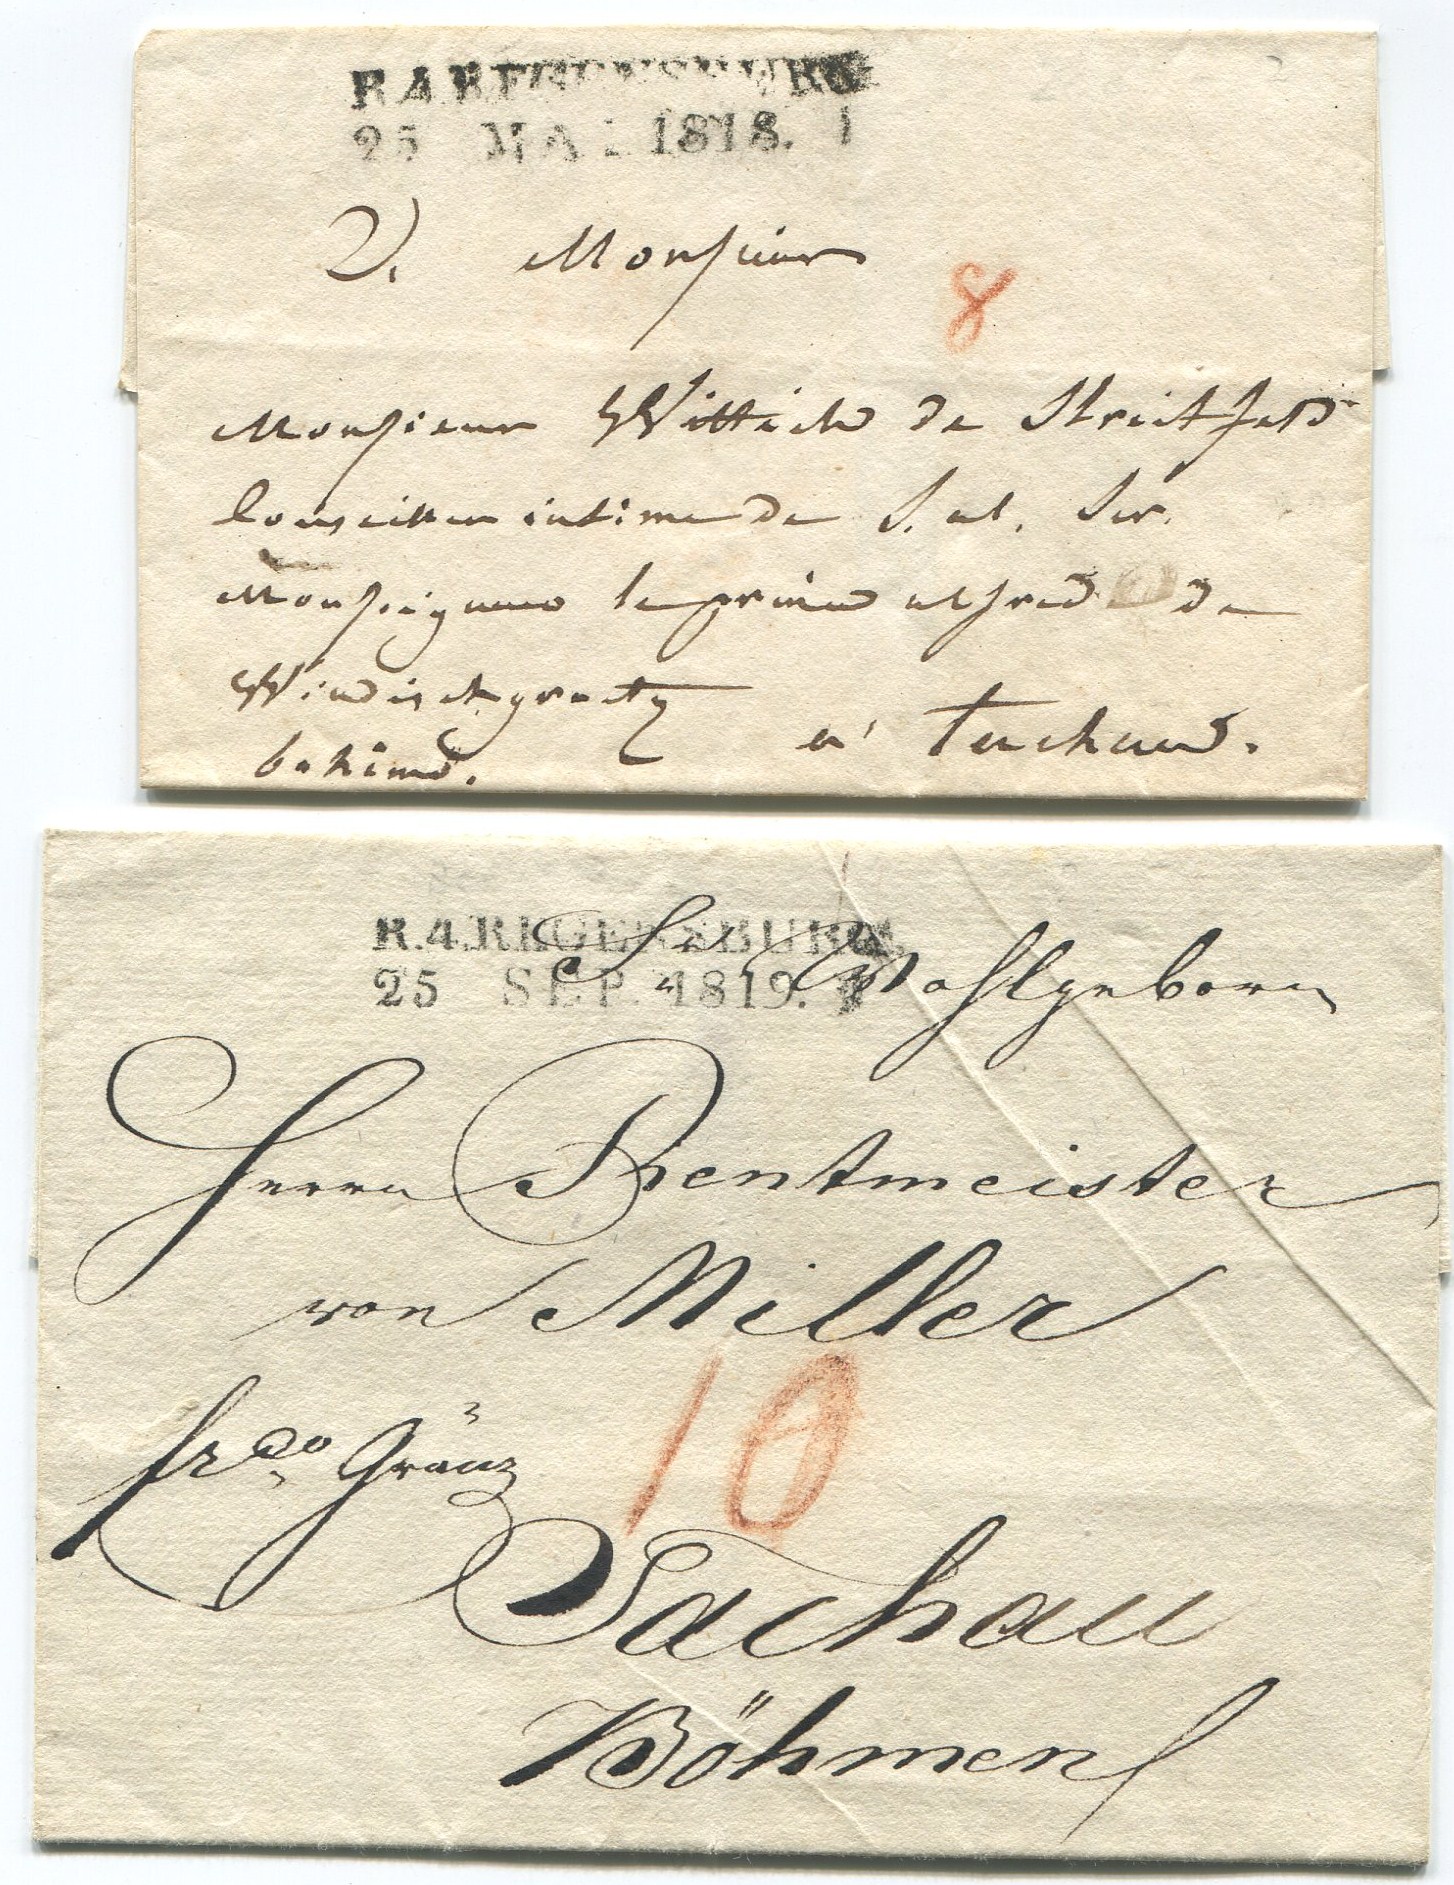 R.4.REGENSBURG.
25 MAI 1818.
A Monsieur
8
Monsieur Wittich de Streitfeld
Conseiller intime de S. al. Ser.
Monseigneur le prince alfred de
Windischgraetz
à Tachau.
bohême.
R.4.REGENSBURG.
25 SEP. 1819.
Sr Wohlgeboren
Herrn Rentmeister
von Miller
10
frco Gränz
Tachau
Böhmen